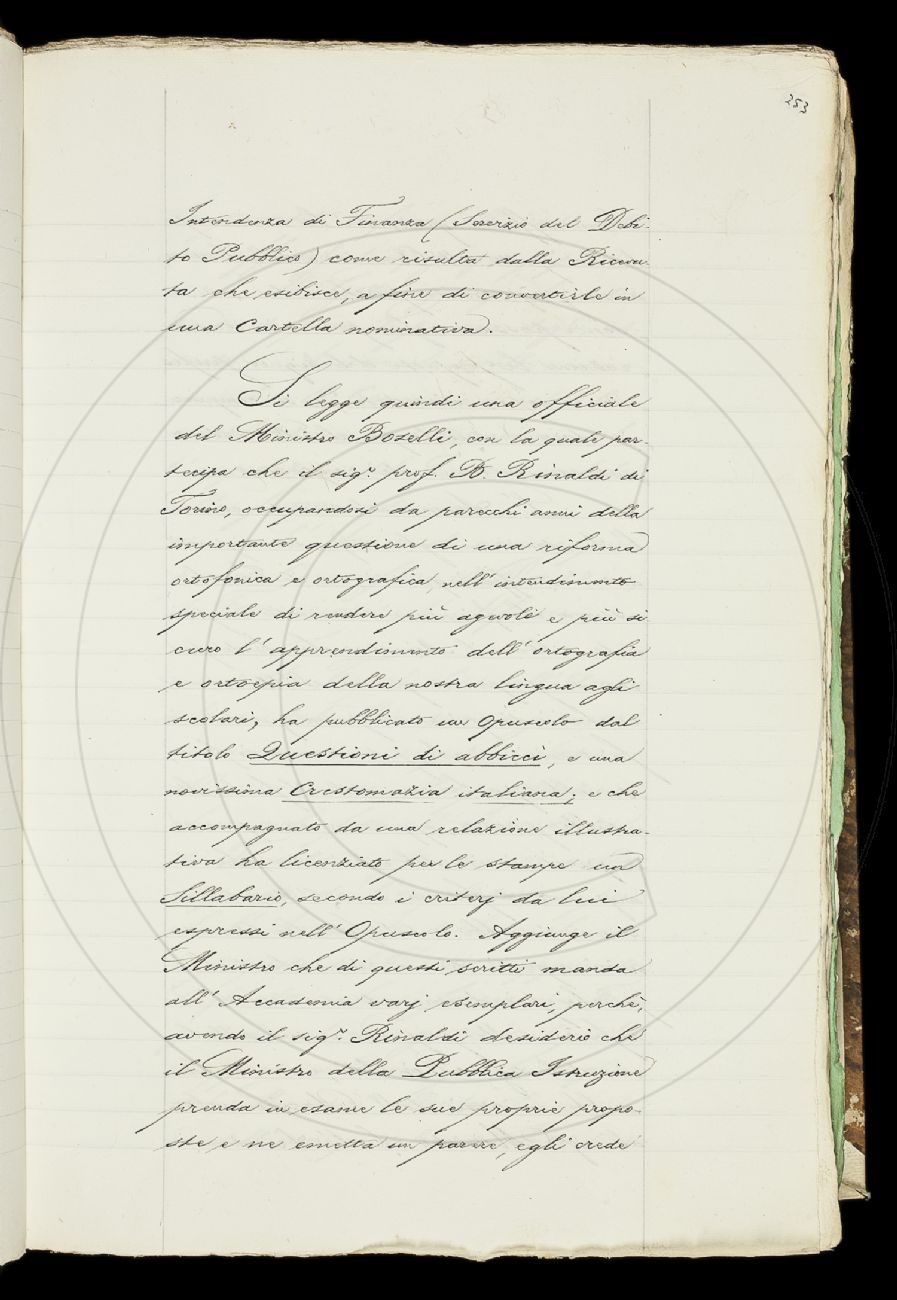 253
Intendenza di Finanza (Servizio del Debi-
to Pubblico) come risulta dalla Ricevu-
ta che esibisce, a fine di convertirle in
una Cartella nominativa.
Si legge quindi una officiale
del Ministro Boselli, con la quale par-
tecipa che il sigr. prof. D. Rinaldi di
Torino, occupandosi da parecchi anni della
importante questione di una riforma
ortofonica e ortografica, nell'intendimento
speciale di rendere più agevole e più si
curo l'apprendimento dell'ortografia
e ortoepia della nostra lingua agli
scolari, ha pubblicato un Opuscolo dal
titolo Questioni di abbiccì, e una
novissima Crestomazia italiana; e che
accompagnato da una relazione illustra-
tiva ha licenziato per le stampe un
Sillabario, secondo i criterj da lui
espressi nell'Opuscolo. Aggiunge il
Ministro che di questi scritti manda
all'Accademia varj esemplari, perchè,
avendo il sigr. Rinaldi desiderio che
il Ministro della Pubblica Istruzione
prenda in esame le sue proprie propo-
ste e ne emetta un parere, egli crede